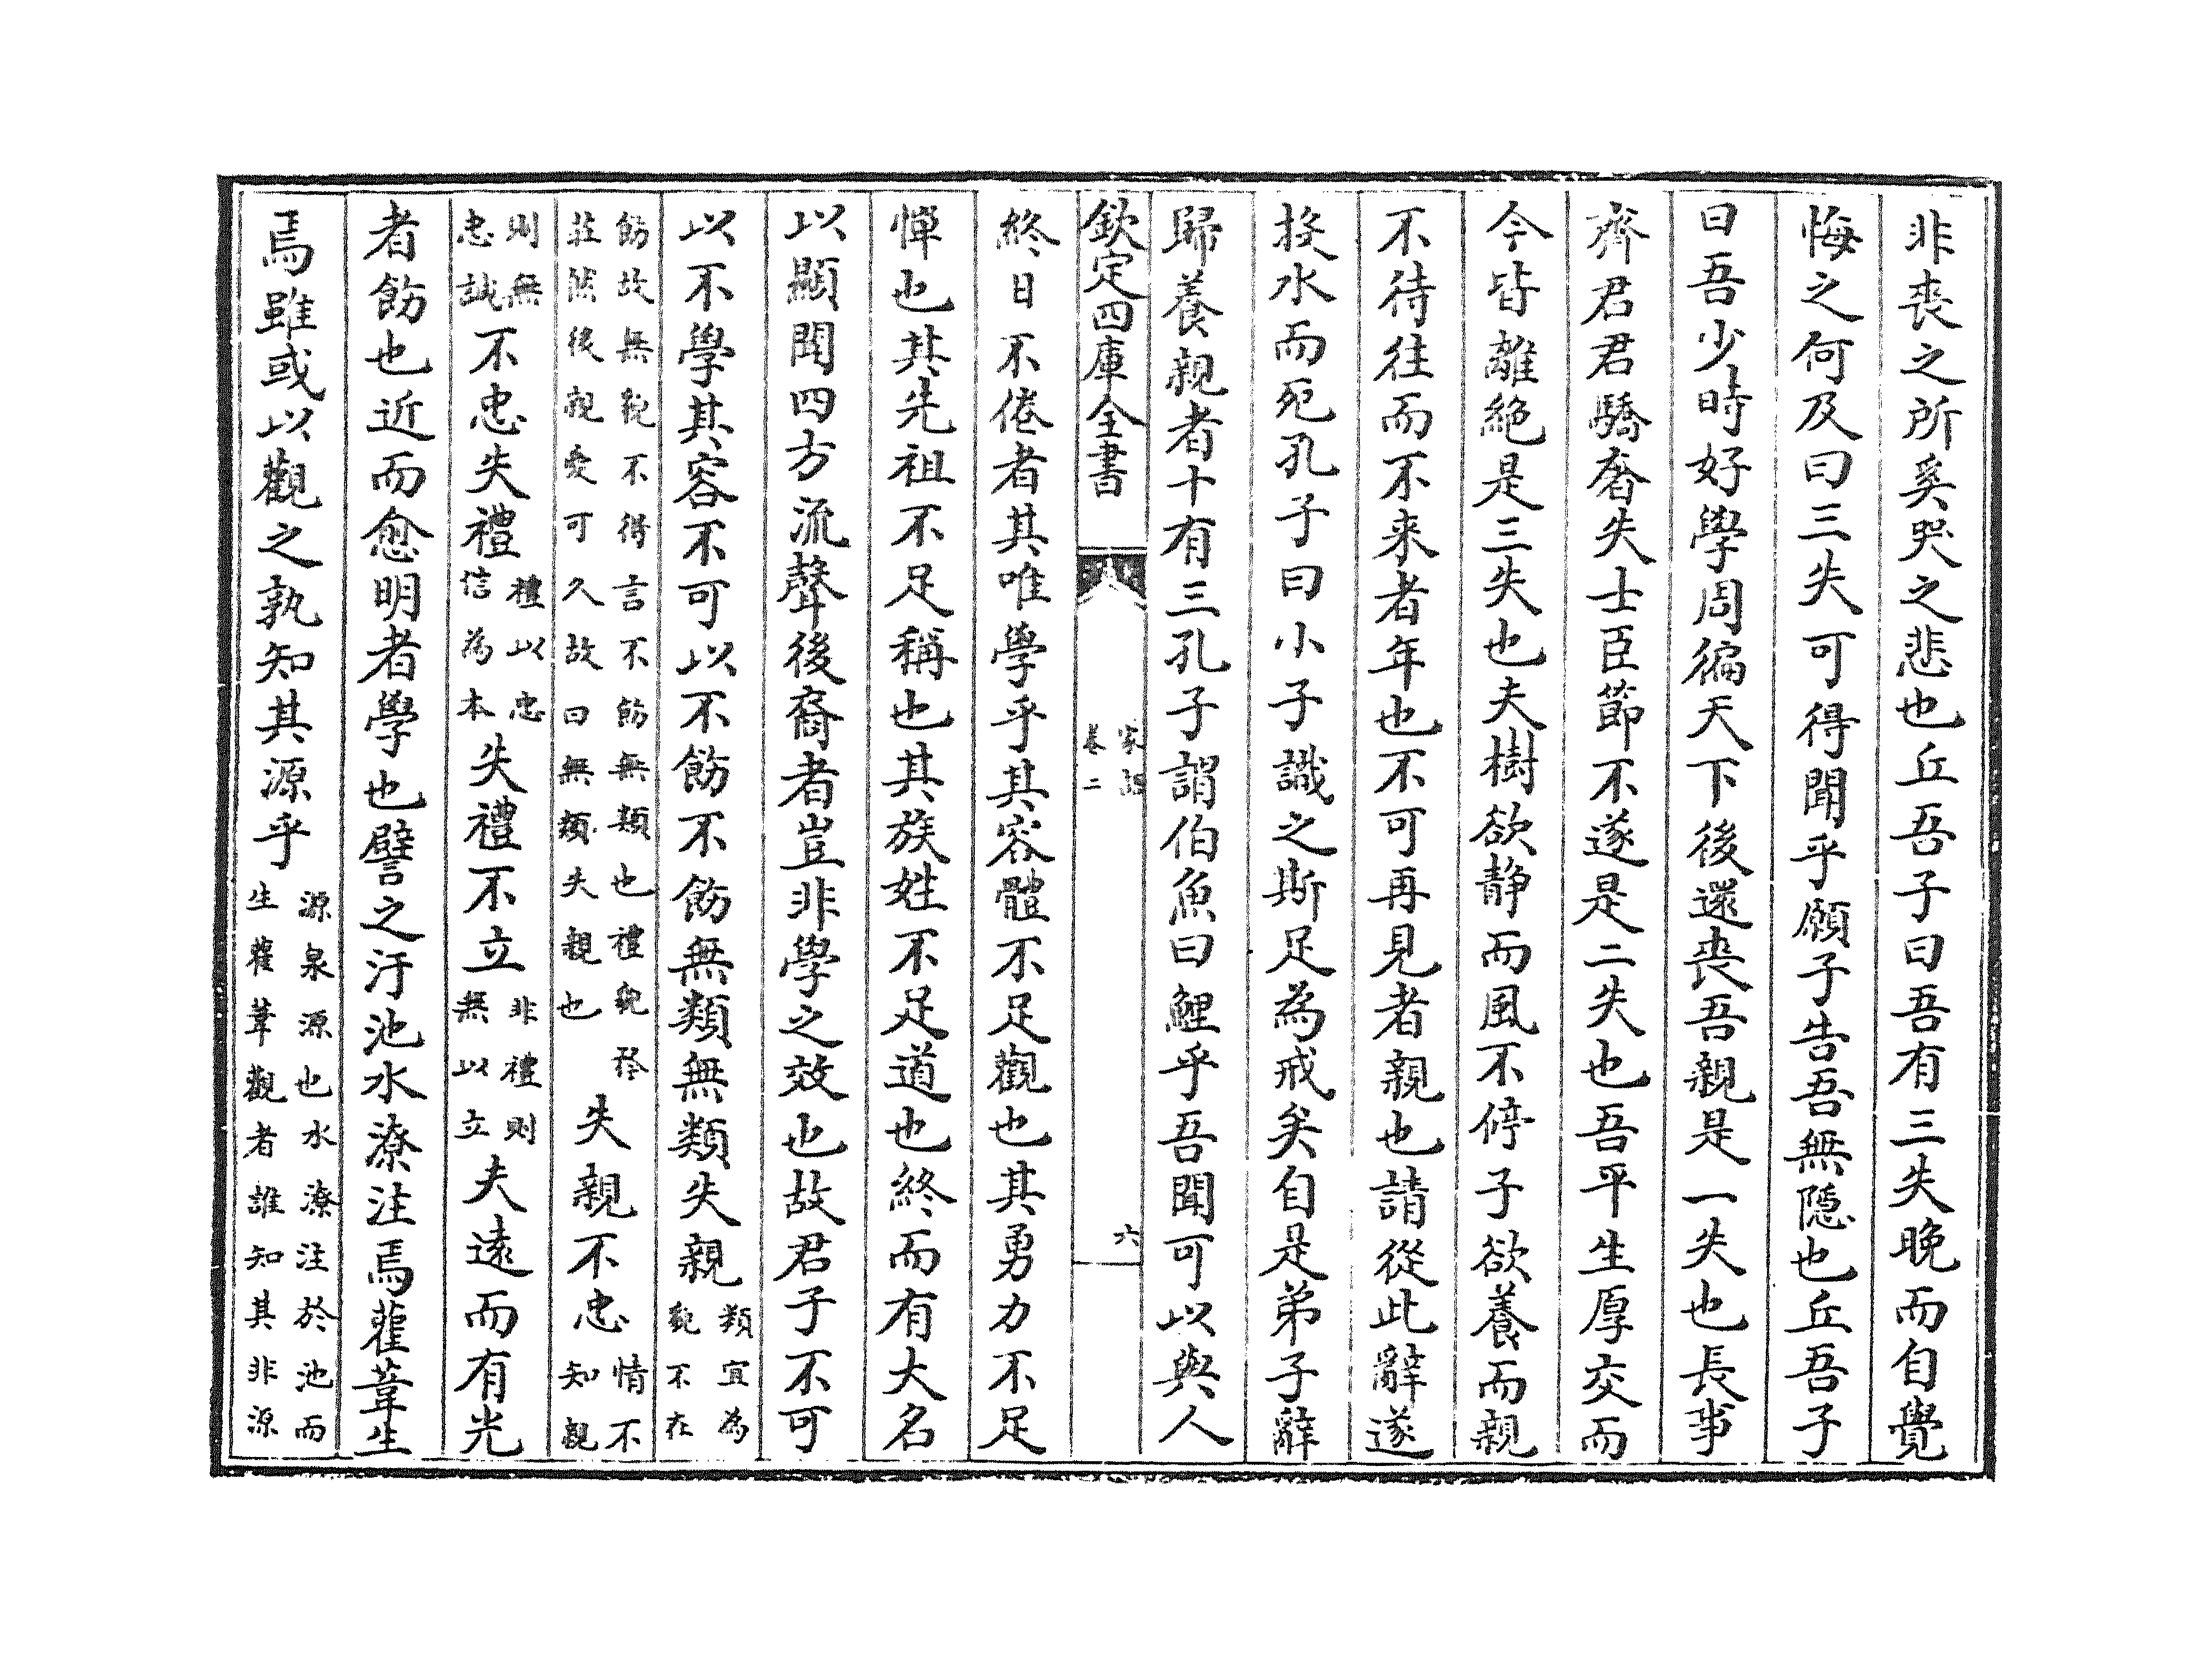 非喪之所奚哭之悲也丘吾子曰吾有三失晚而自覺
悔之何及曰三失可得聞乎願子告吾無隱也丘吾子
曰吾少時好學周徧天下後還喪吾親是一失也長事
齊君君驕奢失士臣節不遂是二失也吾平生厚交而
今皆離絶是三失也夫樹欲静而風不停子欲養而親
不待往而不来者年也不可再見者親也請從此辭遂
投水而死孔子曰小子識之斯足為戒矣自是弟子辭
歸養親者十有三孔子謂伯魚曰鯉乎吾聞可以與人
欽定四庫全書 家語 卷二 六
終日不倦者其唯學乎其容體不足觀也其勇力不足
憚也其先祖不足稱也其族姓不足道也終而有大名
以顯聞四方流聲後裔者豈非學之效也故君子不可
以不學其容不可以不飭不飭無類無類失親類宜為貌不在
飭故無貌不得言不飭無類也禮貌矜莊然後親愛可久故曰無類失親也失親不忠情不知親
則無忠誠不忠失禮禮以忠信為本失禮不立非禮則無以立夫遠而有光
者飭也近而愈明者學也譬之汙池水潦注焉雚葦生
焉雖或以觀之孰知其源乎源泉源也水潦注於池而生雚葦觀者誰知其非源